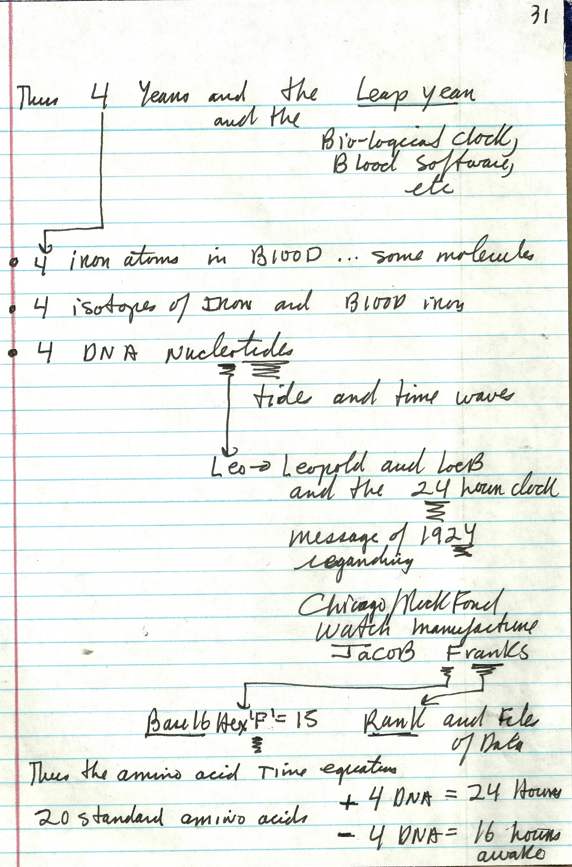 31
Thus 4 Years and the Leap year
and the
Bio-logical clock,
Blood Software,
etc
• 4 iron atoms in Blood ... some molecules
• 4 isotopes of Iron and Blood iron
• 4 DNA Nucleotides
tides and time waves
Leo→ Leopold and LoeB
and the 24 hour clock
message of 1924
regarding
Chicago/RockFord
Watch manufacture
JacoB Franks
Base16 Hex 'F' = 15 Rank and Files
of Data
Thus the amino acid Time equation
20 standard amino acids + 4 DNA = 24 Hours
- 4 DNA = 16 hours
awake